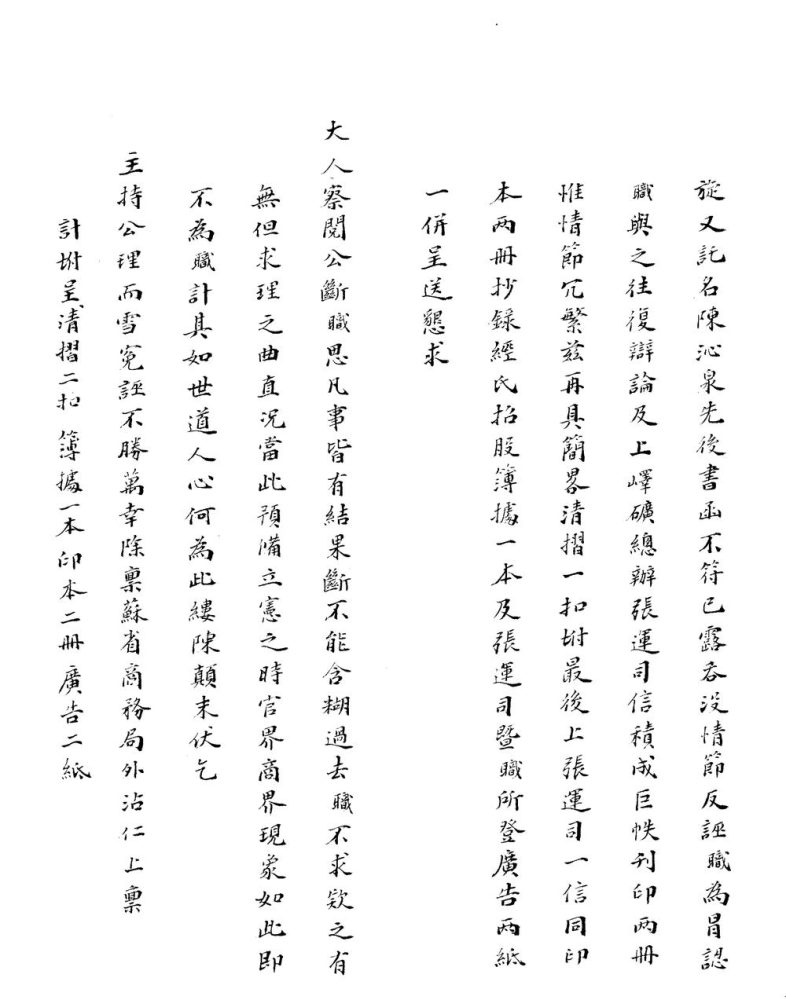 旋又託名陳沁泉先後書函不符已露吞沒情節反誣職為冒認
職與之往復辯論及上嶧礦總辦張運司信積成巨帙刊印兩冊
惟情節冗繁茲再具簡畧清摺一扣坿最後上張運司一信同印
本兩冊抄錄經氏招股簿據一本及張運司暨職所登廣告兩紙
一併呈送懇求
大人察閱公斷職思凡事皆有結果斷不能含糊過去職不求欵之有
無但求理之曲直況當此預備立憲之時官界商界現象如此即
不為職計其如世道人心何為此縷陳顛末伏乞
主持公理而雪冤誣不勝萬幸除稟蘇省商務局外沾仁上稟
計坿呈清摺二扣 簿據一本印本二冊廣告二紙